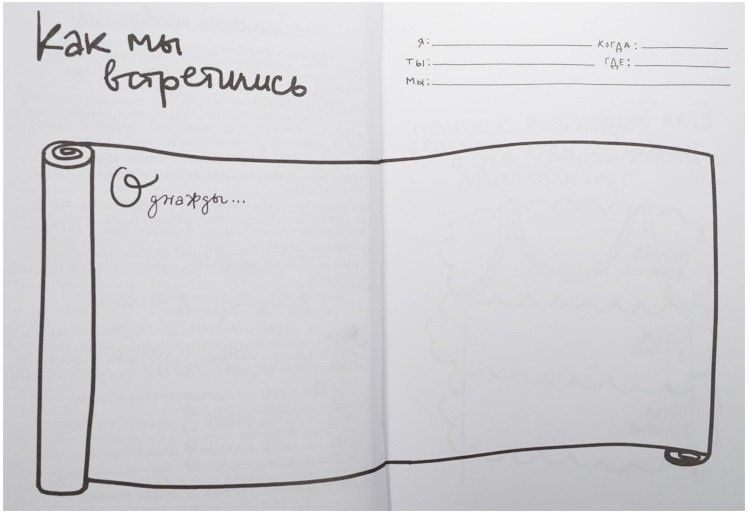 Как мы
встретились
Я: КОГДА:
ТЫ: ГДЕ:
МЫ:
Однажды...